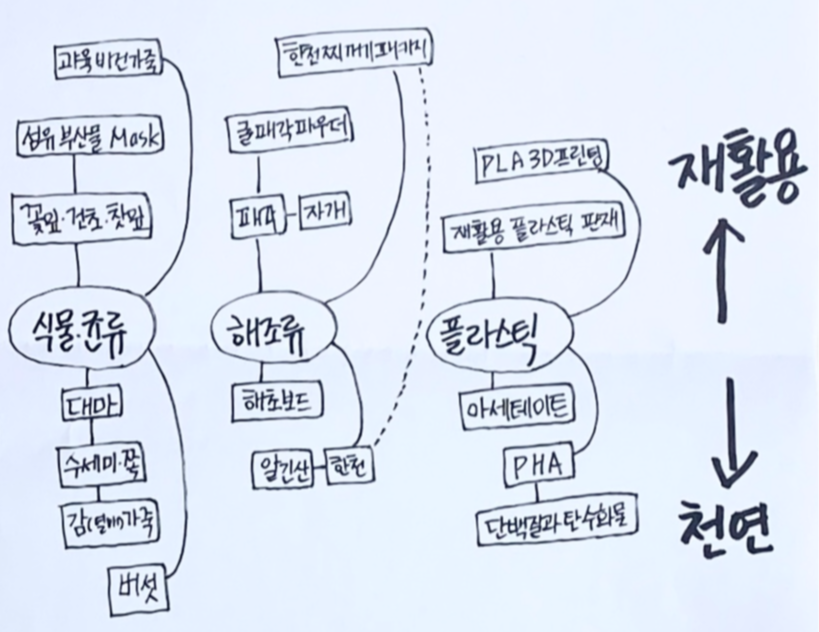 과육 비건가죽
섬유 부산물 Mask
꽃잎·건초·찻잎
식물.균류
대마
수세미·쪽
감(열매)가죽
버섯
한천찌꺼기 패키지
굴패각파우더
패각
자개
해조류
해초보드
알긴산
한천
PLA 3D프린팅
재활용 플라스틱 판재
플라스틱
아세테이트
PHA
단백질과 탄수화물
재활용
천연